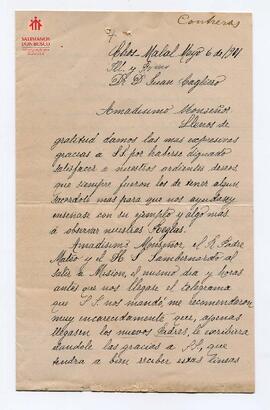 SALESIANOS
DON BOSCO
Contreras
Chos-Malal Mayo 6 de 1901
Il. y Rvmo
Dr. D. Juan Cagliero
Amadisimo Monseñor
Llenos de
gratitud damos las mas expresivas
gracias a SS. por haberse dignado
satisfacer a nuestros ardientes deseos
que siempre fueron los de tener algun
Sacerdote mas para que nos ayudase y
enseñase con su ejemplo y algo mas
á observar nuestras Reglas.
Amadisimo Monseñor, el R. Padre
Mateo y el H. S. Lambernardo al
salir a Mision, el mismo dia y horas
antes que nos llegase el telegrama
que S.S. nos mandó, me recomendaron
muy encarecidamente que, apenas
llegasen los nuevos Padres, le escribiera
dandole las gracias a SS, que
tendra a bien recibir estas lineas